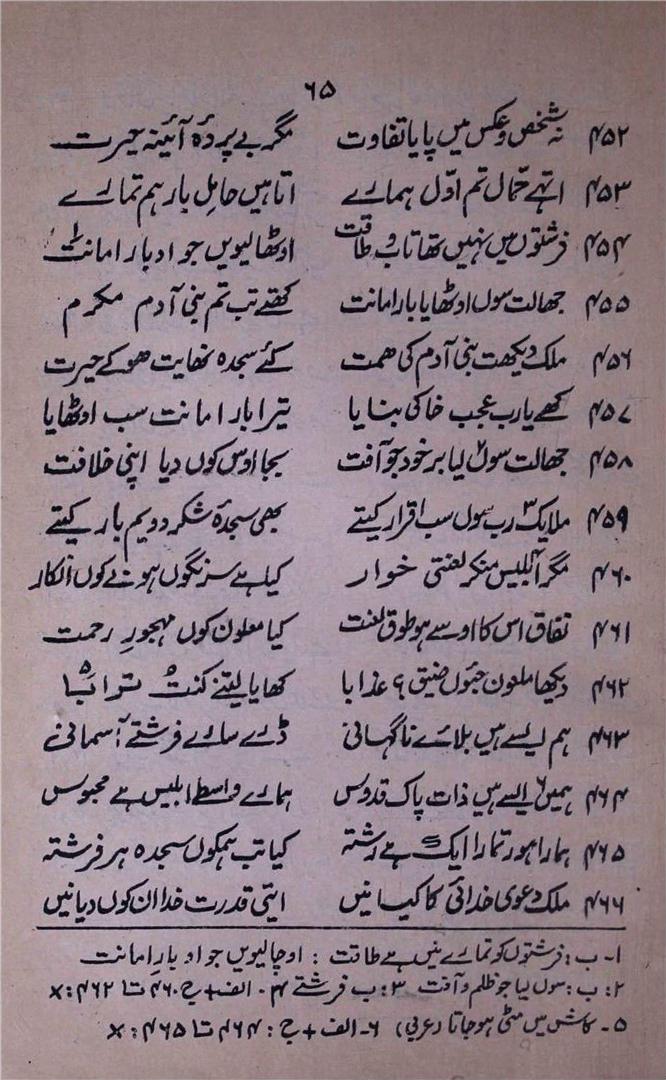 ۶۵
۴۵۲ نہ شخص و عکس میں پایا تفاوت مگر بے پردۂ آئینہ حیرت
۴۵۳ اتھے حمّال تم اوّل ہمارے اتاہیں حاملِ بار ہم تمارے
۴۵۴ فرشتوں میں نہیں تھا تاب و طاقت اوٹھا لیویں جو او بار امانت۱
۴۵۵ جھالت سوں اوٹھایا بار امانت کھتے تب تم بنی آدم مکرم
۴۵۶ ملک دیکھت بنی آدم کی ھمت کئے سجدہ نھایت ھو کے حیرت
۴۵۷ کھے یارب عجب خاکی بنایا تیرا بار امانت سب اوٹھایا
۴۵۸ جھالت سوں۲ لیا بر خود جو آفت بجا اوس کوں دیا اپنی خلافت
۴۵۹ ملایک۳ رب سوں سب اقرار کیتے بھی سجدۂ شکر دویم بار کیتے
۴۶۰ مگر ابلیس۴ منکر لعنتی خوار کیا ہے سرنگوں ہونے کوں انکار
۴۶۱ نفاق اس کا اوسے ہو طوق لعنت کیا معلون کوں مہجورِ رحمت
۴۶۲ دیکھا ملعون جنوں ضیق ؟ عذابا کھا یا لیتنے کنت تراباً۵
۴۶۳ ہم ایسے ہیں بلائے ناگہانی ڈرے سارے فرشتے آسمانی
۴۶۴ ہمیں۶ ایسے ہیں ذات پاک قدوس ہمارے واسط ابلیس ہے محبوس
۴۶۵ ہمارا ہور تمارا ایک ہے رشتہ کیا تب ہمکوں سجدہ ہر فرشتہ
۴۶۶ ملک دعوی خدائی کا کیا نیں ایتی قدرت خدا ان کوں دیا نیں
۱۔ ب: فرشتوں کو تمارے نیں ہے طاقت : اوچا لیویں جو او بارِ امانت
۲: ب: سوں لیا جو ظلم و آفت ۳: ب فرشتے ۴۔ الف + ج ۴۶۰ تا ۴۶۲: x
۵۔ کاش میں مٹی ہو جاتا (عربی) ۶۔ الف + ج: ۴۶۴ تا ۴۶۵: x